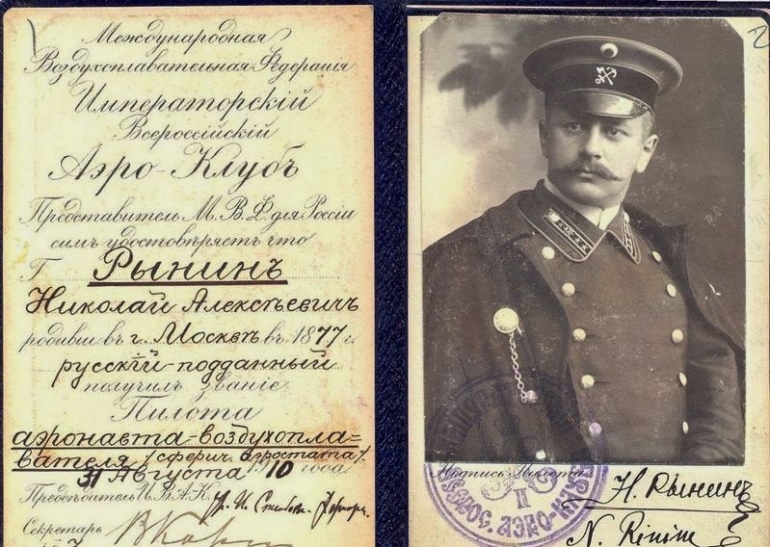 Международная
Воздухоплавательная Федерація
Императорскій
Всероссійскій
Аэро-Клубъ
Представитель М. В. Ф. для Россіи
симъ удостовѣряетъ что
Г. Рынинъ
Николай Алексѣевичъ
родивш въ г. Москвѣ въ 1877 г.
русскій-подданный
получилъ званіе
Пилота
аэронавта-воздухопла=
вателя (сферич. аэростата).
31 Августа 1910 года
Предсѣдатель И. В. А. К.
Секретарь
Подпись Пилота
Н. Рынинъ
N. Rinine